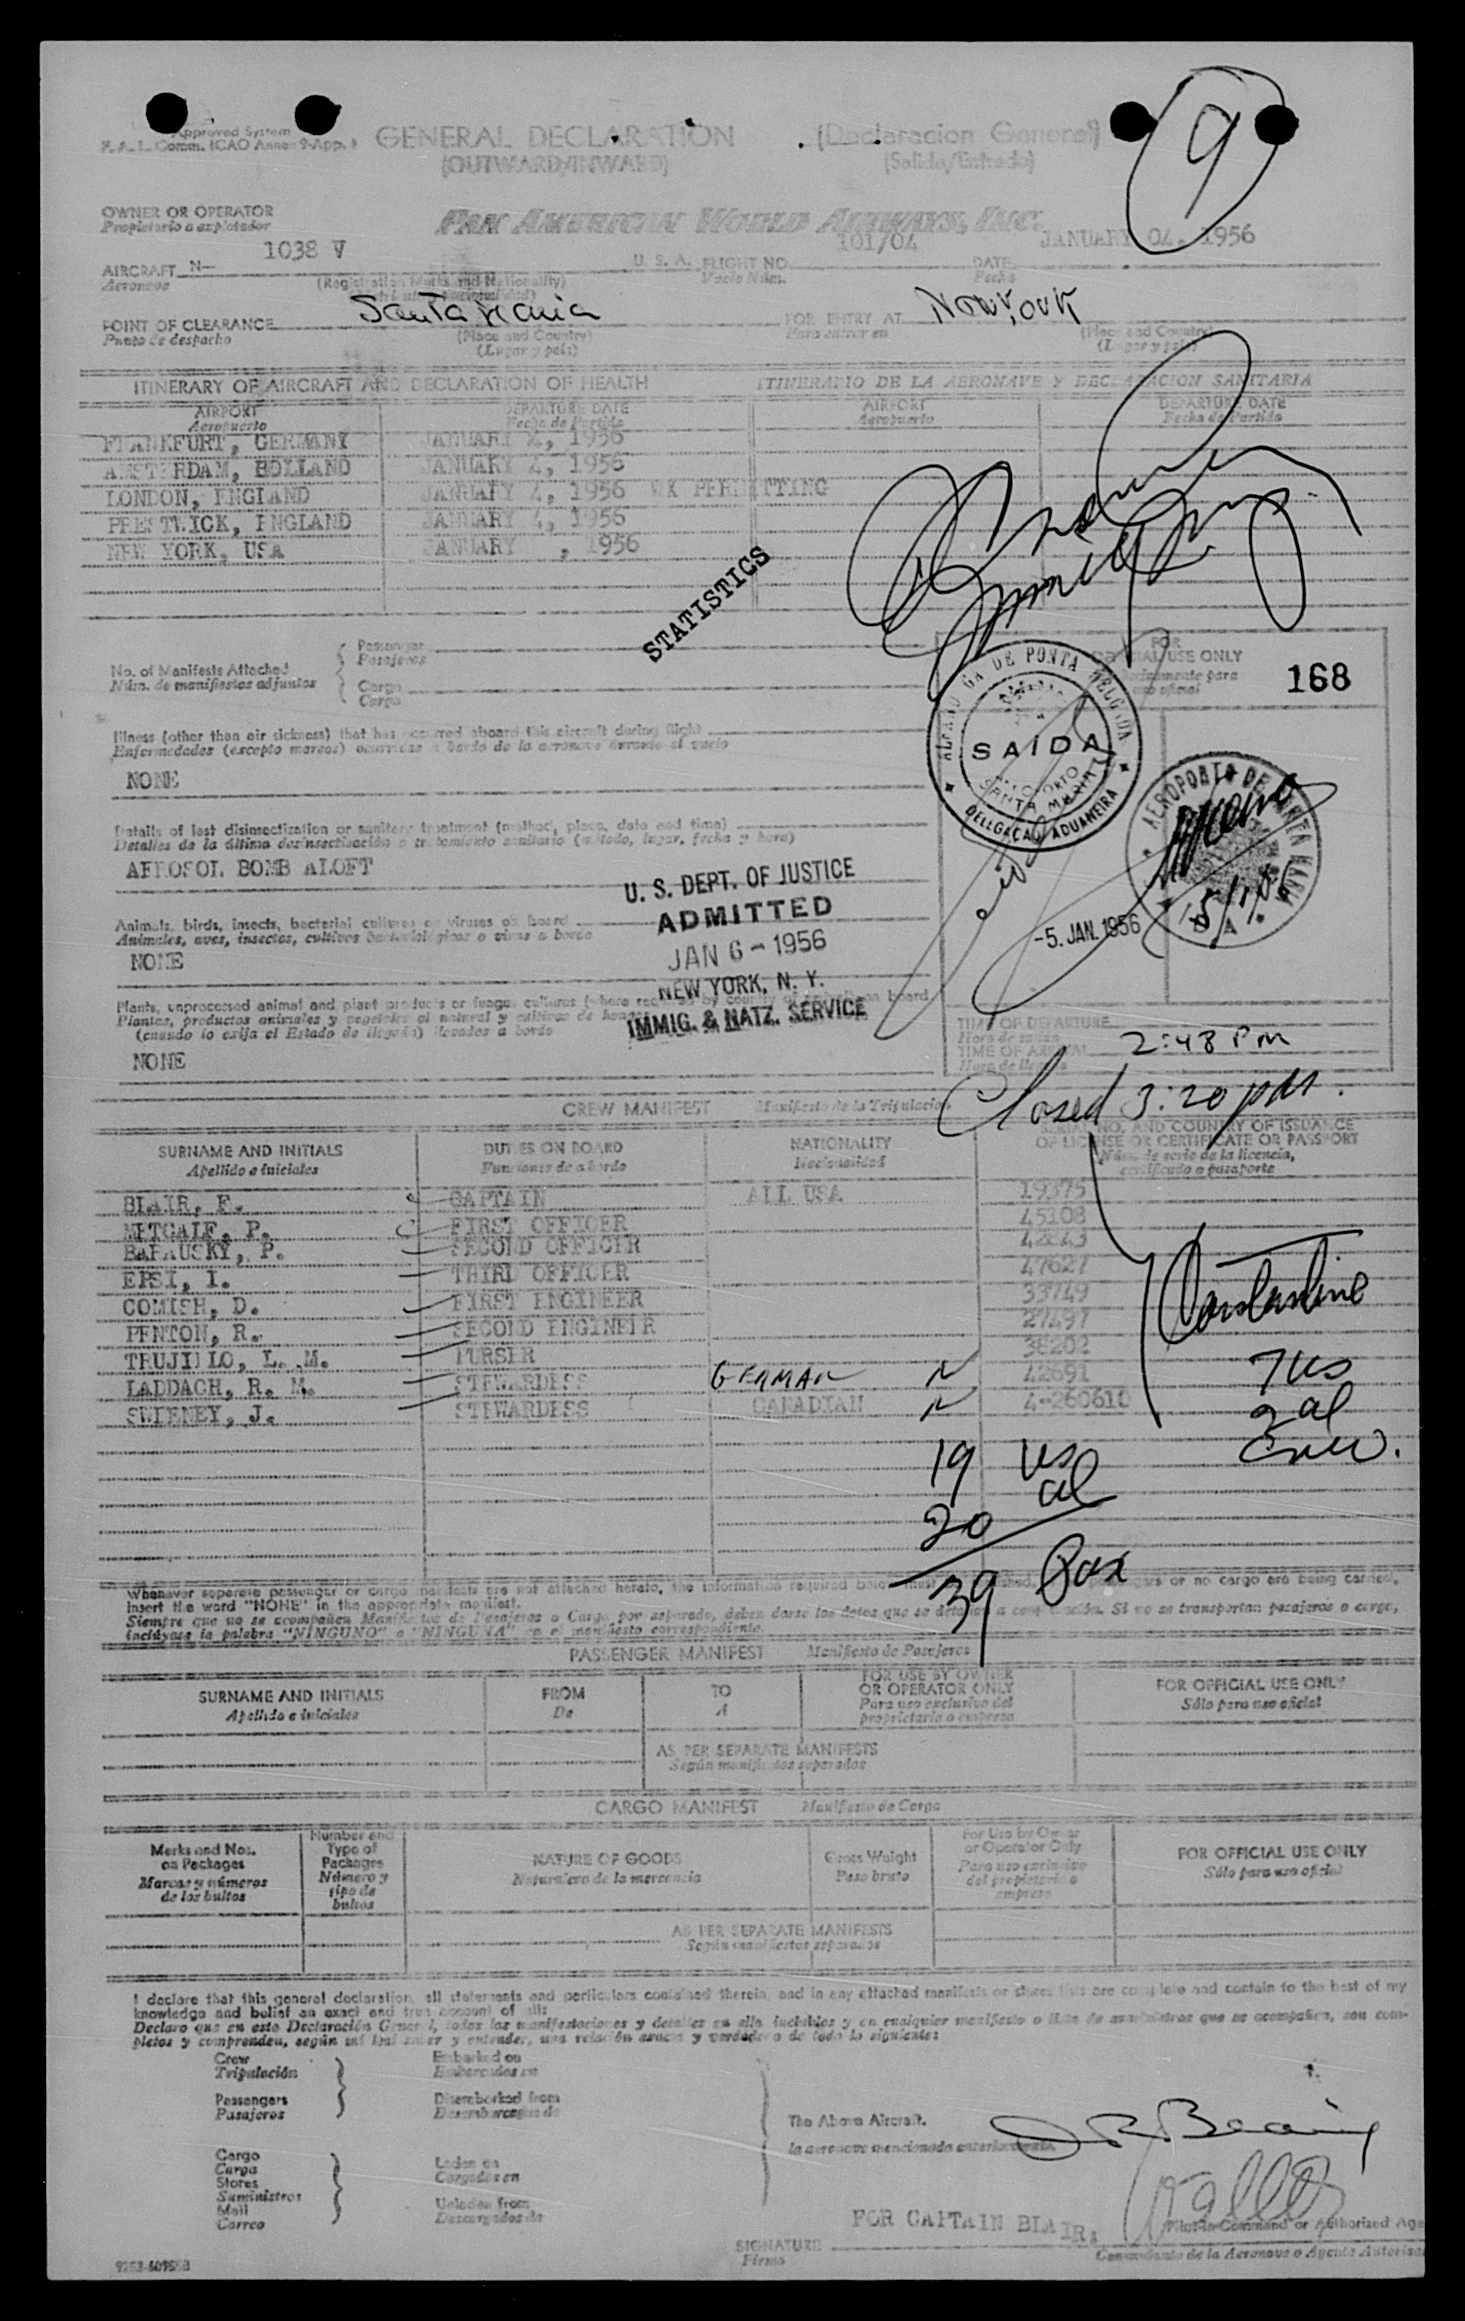 Approved System
F. A. L. Comm. ICAO Annex 9-App. 1
GENERAL DECLARATION (Declaracion General)
(OUTWARD/INWARD) (Salida/Entrada)
9
OWNER OR OPERATOR
Propietario o explotador
PAN AMERICAN WORLD AIRWAYS, INC.
1038 V 101/04 JANUARY 04, 1956
AIRCRAFT N- U. S. A. FLIGHT NO. DATE
Aeronave (Registration Marks and Nationality) Vuelo Núm. Fecha
POINT OF CLEARANCE Santa Maria FOR ENTRY AT New York
Punto de despacho (Place and Country) Para entrar en (Place and Country)
(Lugar y país) (Lugar y país)
ITINERARY OF AIRCRAFT AND DECLARATION OF HEALTH ITINERARIO DE LA AERONAVE Y DECLARACION SANITARIA
AIRPORT DEPARTURE DATE AIRPORT DEPARTURE DATE
Aeropuerto Fecha de Partida Aeropuerto Fecha de Partida
FRANKFURT, GERMANY JANUARY 4, 1956
AMSTERDAM, HOLLAND JANUARY 4, 1956
LONDON, ENGLAND JANUARY 4, 1956 WX PERMITTING
PRESTWICK, ENGLAND JANUARY 4, 1956
NEW YORK, USA JANUARY , 1956
STATISTICS
No. of Manifests Attached
Núm. de manifiestos adjuntos
Passenger
Pasajeros
Cargo
Carga
FOR
OFFICIAL USE ONLY
Unicamente para
uso oficial
168
ALFANDEGA DE PONTA DELGADA
SAIDA
AEROPORTO
SANTA MARIA
DELEGAÇÃO ADUANEIRA
Illness (other than air sickness) that has occurred aboard this aircraft during flight
Enfermedades (excepto mareos) ocurridas a bordo de la aeronave durante el vuelo
NONE
AEROPORTO DE SANTA MARIA
-5. JAN. 1956
Details of last disinsectization or sanitary treatment (method, place, date and time)
Detalles de la última desinsectización o tratamiento sanitario (método, lugar, fecha y hora)
AEROSOL BOMB ALOFT
U. S. DEPT. OF JUSTICE
ADMITTED
JAN 6 - 1956
NEW YORK, N. Y.
IMMIG. & NATZ. SERVICE
Animals, birds, insects, bacterial cultures or viruses on board
Animales, aves, insectos, cultivos bacteriológicos o virus a bordo
NONE
Plants, unprocessed animal and plant products or fungus cultures (where required by country of on board
Plantas, productos animales y vegetales al natural y cultivos de
(cuando lo exija el Estado de llegada) llevados a bordo
NONE
TIME OF DEPARTURE
Hora de salida
TIME OF ARRIVAL 2:48 PM
Hora de llegada
Closed 3:20 pm.
CREW MANIFEST Manifiesto de la Tripulacion
SURNAME AND INITIALS DUTIES ON BOARD NATIONALITY SERIAL NO. AND COUNTRY OF ISSUANCE
OF LICENSE OR CERTIFICATE OR PASSPORT
Apellido e iniciales Funciones de a bordo Nacionalidad Núm. de serie de la licencia,
certificado o pasaporte
BLAIR, F. CAPTAIN ALL USA 19375
METCALF, P. FIRST OFFICER 45108
BARAUSKY, P. SECOND OFFICER
EPSI, I. THIRD OFFICER 47627
COMISH, D. FIRST ENGINEER 33749
PENTON, R. SECOND ENGINEER 27497
TRUJILLO, L. M. PURSER 38202
LADDACH, R. M. STEWARDESS GERMAN 42691
SWEENEY, J. STEWARDESS CANADIAN 4-260610
Constantine
7 US
2 al
Crew.
19 US
20 al
39 Pax
Whenever separate passenger or cargo manifests are not attached hereto, the information required below must or no cargo are being carried,
insert the word "NONE" in the appropriate manifest.
Siempre que no se acompañen Manifiestos de Pasajeros o Carga por separado, deben darse los datos que se detallan a continuación. Si no se transportan pasajeros o carga,
inclúyase la palabra "NINGUNO" o "NINGUNA" en el manifiesto correspondiente.
PASSENGER MANIFEST Manifiesto de Pasajeros
SURNAME AND INITIALS FROM TO FOR USE BY OWNER
OR OPERATOR ONLY FOR OFFICIAL USE ONLY
Apellido e iniciales De A Para uso exclusivo del
propietario o empresa Sólo para uso oficial
AS PER SEPARATE MANIFESTS
Según manifiestos separados
CARGO MANIFEST Manifiesto de Carga
Marks and Nos.
on Packages
Marcas y números
de los bultos
Number and
Type of
Packages
Número y
tipo de
bultos
NATURE OF GOODS
Naturaleza de la mercancía
Gross Weight
Peso bruto
For Use by Owner
or Operator Only
Para uso exclusivo
del propietario o
empresa
FOR OFFICIAL USE ONLY
Sólo para uso oficial
AS PER SEPARATE MANIFESTS
Según manifiestos separados
I declare that this general declaration, all statements and particulars contained therein, and in any attached manifests or stores lists are complete and contain to the best of my
knowledge and belief an exact and true account of all:
Declaro que en esta Declaración General, todas las manifestaciones y detalles en ella incluidos y en cualquier manifiesto o lista de suministros que se acompañen, son com-
pletos y comprenden, según mi leal saber y entender, una relación exacta y verdadera de todo lo siguiente:
Crew Embarked on
Tripulación Embarcados en
Passengers Disembarked from
Pasajeros Desembarcados de
The Above Aircraft.
la aeronave mencionada anteriormente.
Cargo
Carga
Stores
Suministros
Mail
Correo
Laden on
Cargados en
Unladen from
Descargados de
FOR CAPTAIN BLAIR,
Pilot in Command or Authorized Age
SIGNATURE
Firma
Comandante de la Aeronave o Agente Autoriza